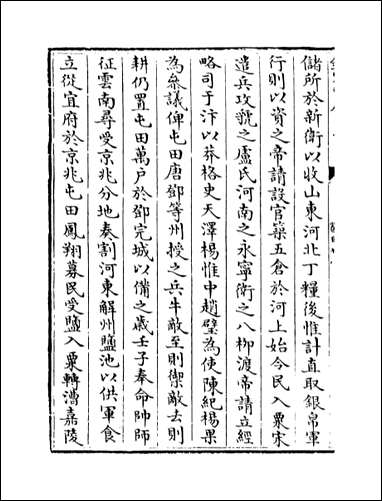 儲所於新衛以收山東河北丁糧後惟計直取銀帛軍
行則以資之帝請設官築五倉於河上始令民入粟宋
遣兵攻虢之盧氏河南之永寧衛之八柳渡帝請立經
略司于汴以莽格史天澤楊惟中趙璧為使陳紀楊果
為參議俾屯田唐鄧等州授之兵牛敵至則禦敵去則
耕仍置屯田萬戶於鄧完城以備之歲壬子奉命帥師
征雲南尋受京兆分地奏割河東解州鹽池以供軍食
立從宜府於京兆屯田鳳翔募民受鹽入粟轉漕嘉陵